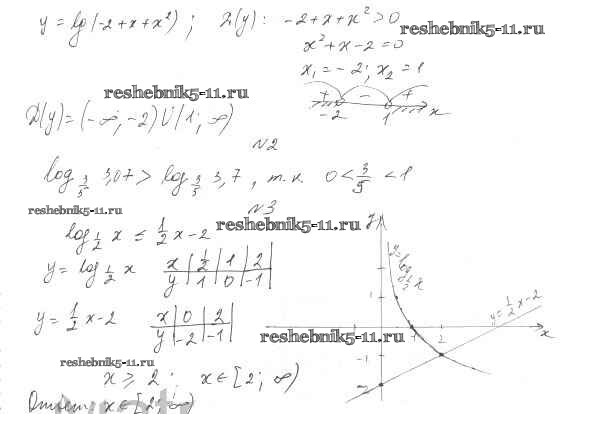 y = lg(-2+x+x²) ; D(y): -2+x+x² > 0
reshebnik5-11.ru
x²+x-2=0
x₁=-2; x₂=1
reshebnik5-11.ru
+ - +
-2 1 x
D(y)=(-∞;-2)∪(1;∞)
№2
log_{3/5} 3,07 > log_{3/5} 3,7, т.к. 0 < 3/5 < 1
reshebnik5-11.ru
№3
reshebnik5-11.ru
log_{1/2} x ≤ 1/2 x - 2
y = log_{1/2} x
x | 1/2 | 1 | 2
y | 1 | 0 | -1
y = 1/2 x - 2
x | 0 | 2
y | -2 | -1
reshebnik5-11.ru
y
y=log_{1/2} x
y=1/2 x-2
1
1 2 x
-1
-2
reshebnik5-11.ru
x ≥ 2; x∈[2; ∞)
Ответ: x∈[2; ∞)